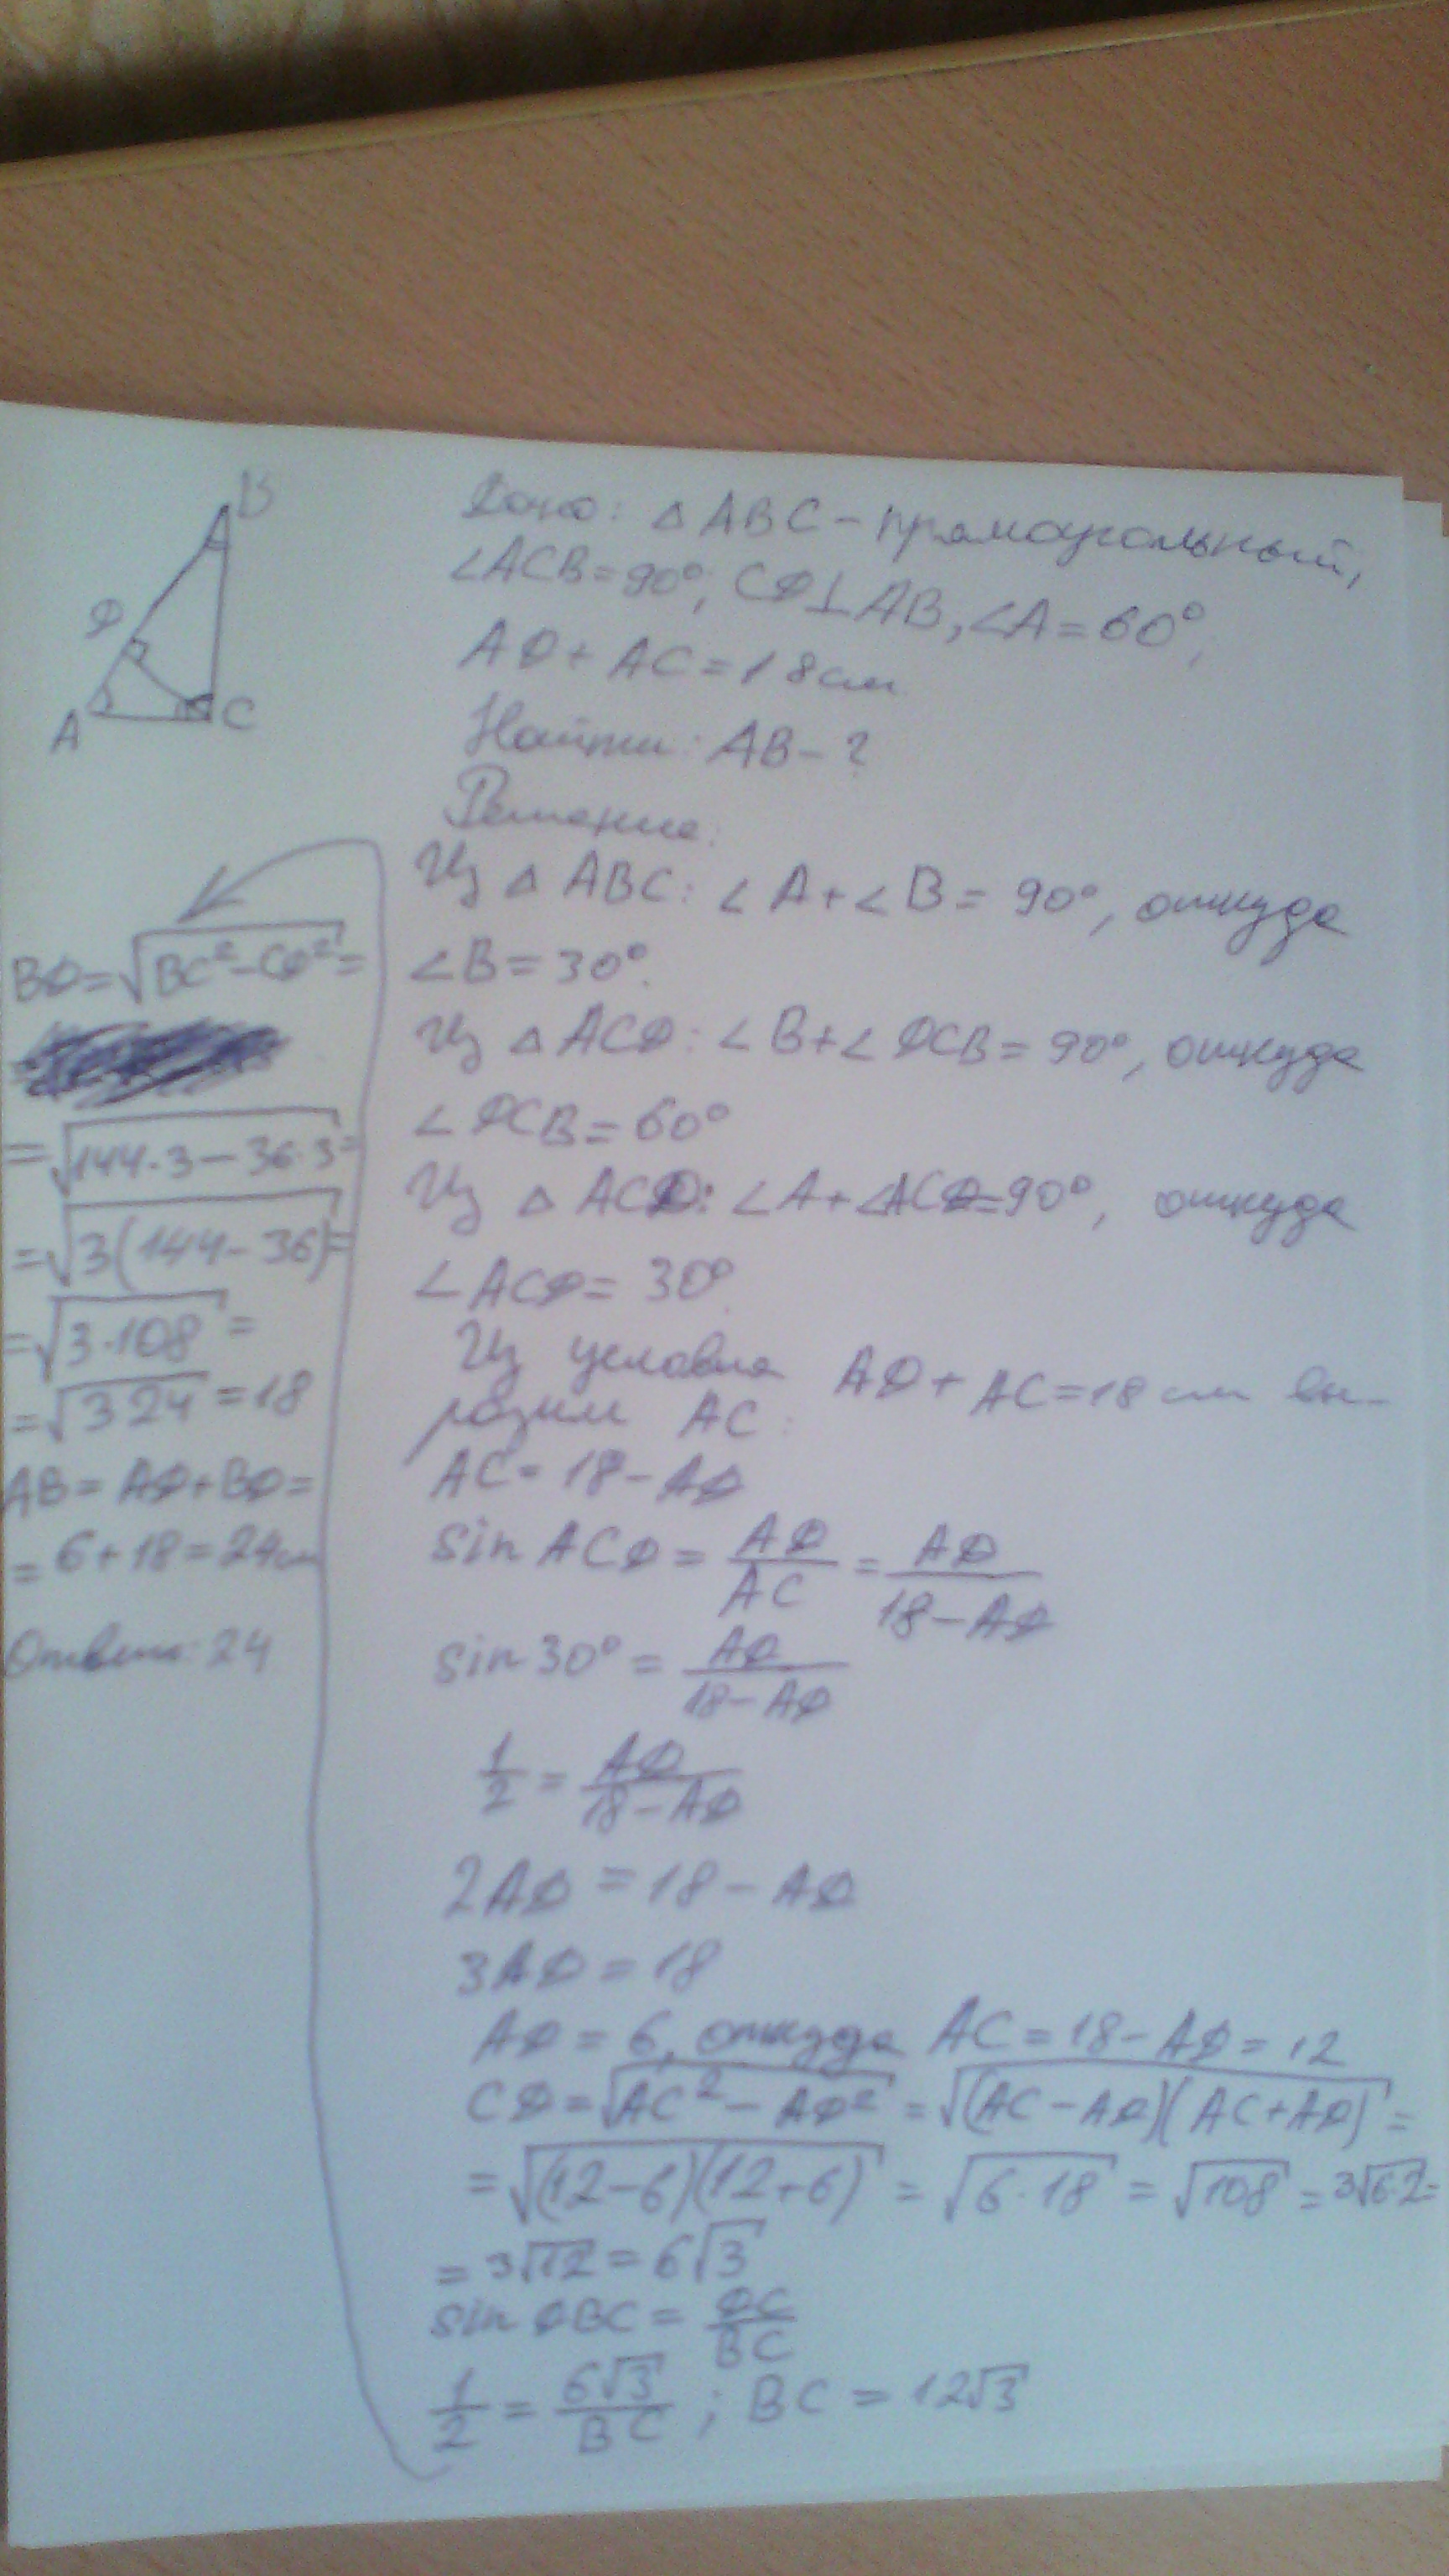 B
D
A
C
Дано: △ ABC - прямоугольный,
∠ACB = 90°; CD⊥AB, ∠A = 60°,
AD + AC = 18 см
Найти: AB - ?
Решение:
Из △ ABC: ∠A + ∠B = 90°, откуда
∠B = 30°.
Из △ ACD: ∠B + ∠DCB = 90°, откуда
∠DCB = 60°
Из △ ACD: ∠A + ∠ACD = 90°, откуда
∠ACD = 30°.
Из условия AD + AC = 18 см вы-
разим AC:
AC = 18 - AD
sin ACD = AD/AC = AD/(18 - AD)
sin 30° = AD/(18 - AD)
1/2 = AD/(18 - AD)
2AD = 18 - AD
3AD = 18
AD = 6, откуда AC = 18 - AD = 12
CD = √(AC² - AD²) = √((AC - AD)(AC + AD)) =
= √((12 - 6)(12 + 6)) = √(6·18) = √108 = 3√(6·2) =
= 3√12 = 6√3
sin DBC = DC/BC
1/2 = 6√3/BC ; BC = 12√3
BD = √(BC² - CD²) =
= √(144·3 - 36·3) =
= √(3(144 - 36)) =
= √(3·108) =
= √324 = 18
AB = AD + BD =
= 6 + 18 = 24 см
Ответ: 24